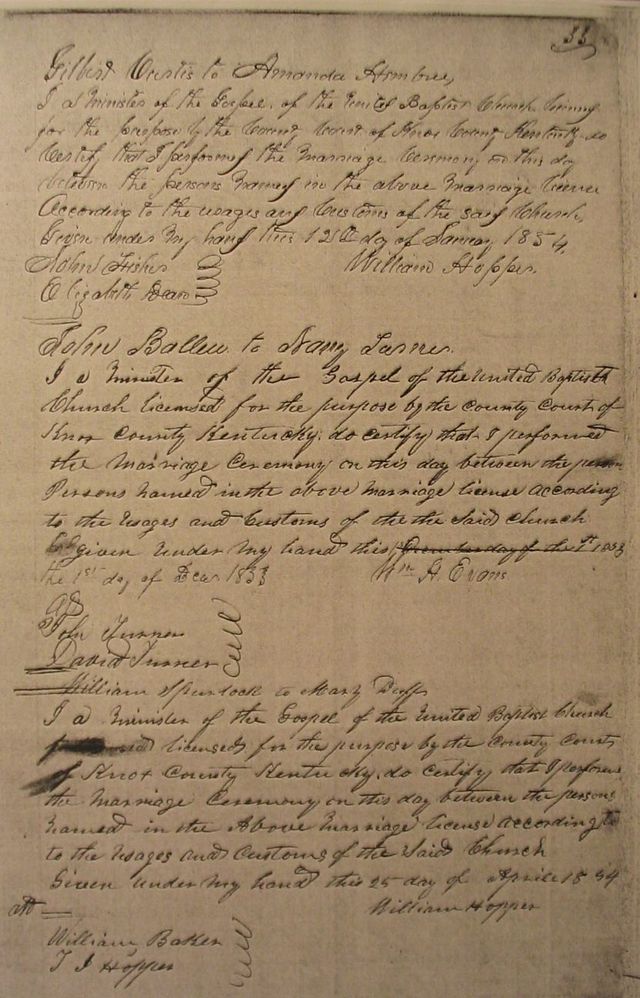 33
Gilbert Curtis to Amanda Hembree,
I a Minister of the Gospel, of the United Baptist Church
for the purpose by the County Court of Knox County Kentucky do
Certify that I performed the Marriage Ceremony on this day
between the persons Named in the above Marriage Licence
According to the usages and Customs of the said Church,
Given under My hand this 12th day of January 1854,
John Fisher William Hopper.
Elizabeth Dean
John Ballew to Nancy
I a Minister of the Gospel of the United Baptist
Church licensed for the purpose by the County Court of
Knox County Kentucky do certify that I performed
the Marriage Ceremony on this day between the
Persons named in the above Marriage license according
to the Usages and Customs of the Said Church
given under My hand this day of the 1st 1853
the 1st day of Decr 1853 Wm A. Evans
att
John Turner
David Turner
William Spurlock to Mary Duff
I a Minister of the Gospel of the United Baptist Church
licensed for the purpose by the County Court
of Knox County Kentucky do certify that I performed
the Marriage Ceremony on this day between the persons
named in the Above Marriage license according to
to the Usages and Customs of the Said Church
Given under My hand this 25 day of Aprile 1854
att William Hopper
William Baker
T J Hopper